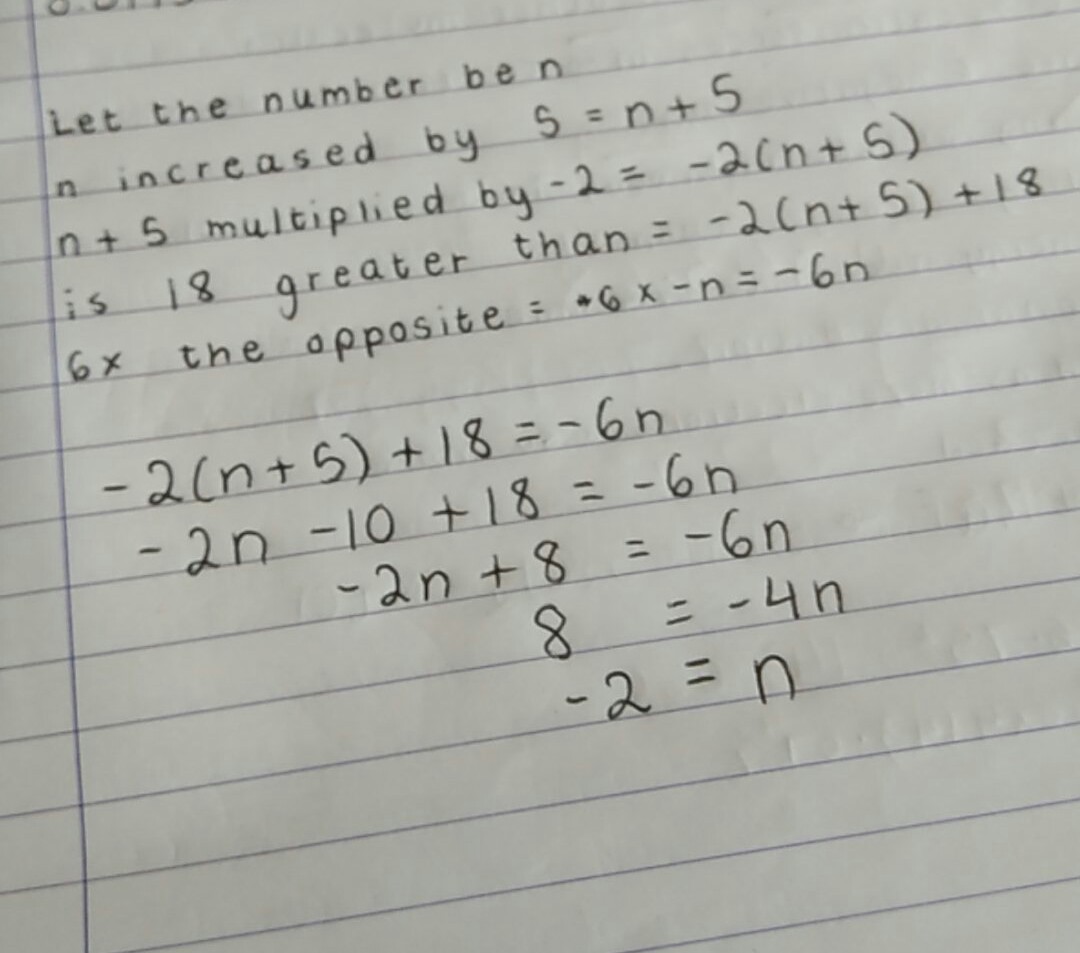 Let the number be n
n increased by 5 = n + 5
n + 5 multiplied by -2 = -2(n + 5)
is 18 greater than = -2(n + 5) + 18
6x the opposite = 6 x -n = -6n
-2(n + 5) + 18 = -6n
-2n -10 + 18 = -6n
-2n + 8 = -6n
8 = -4n
-2 = n